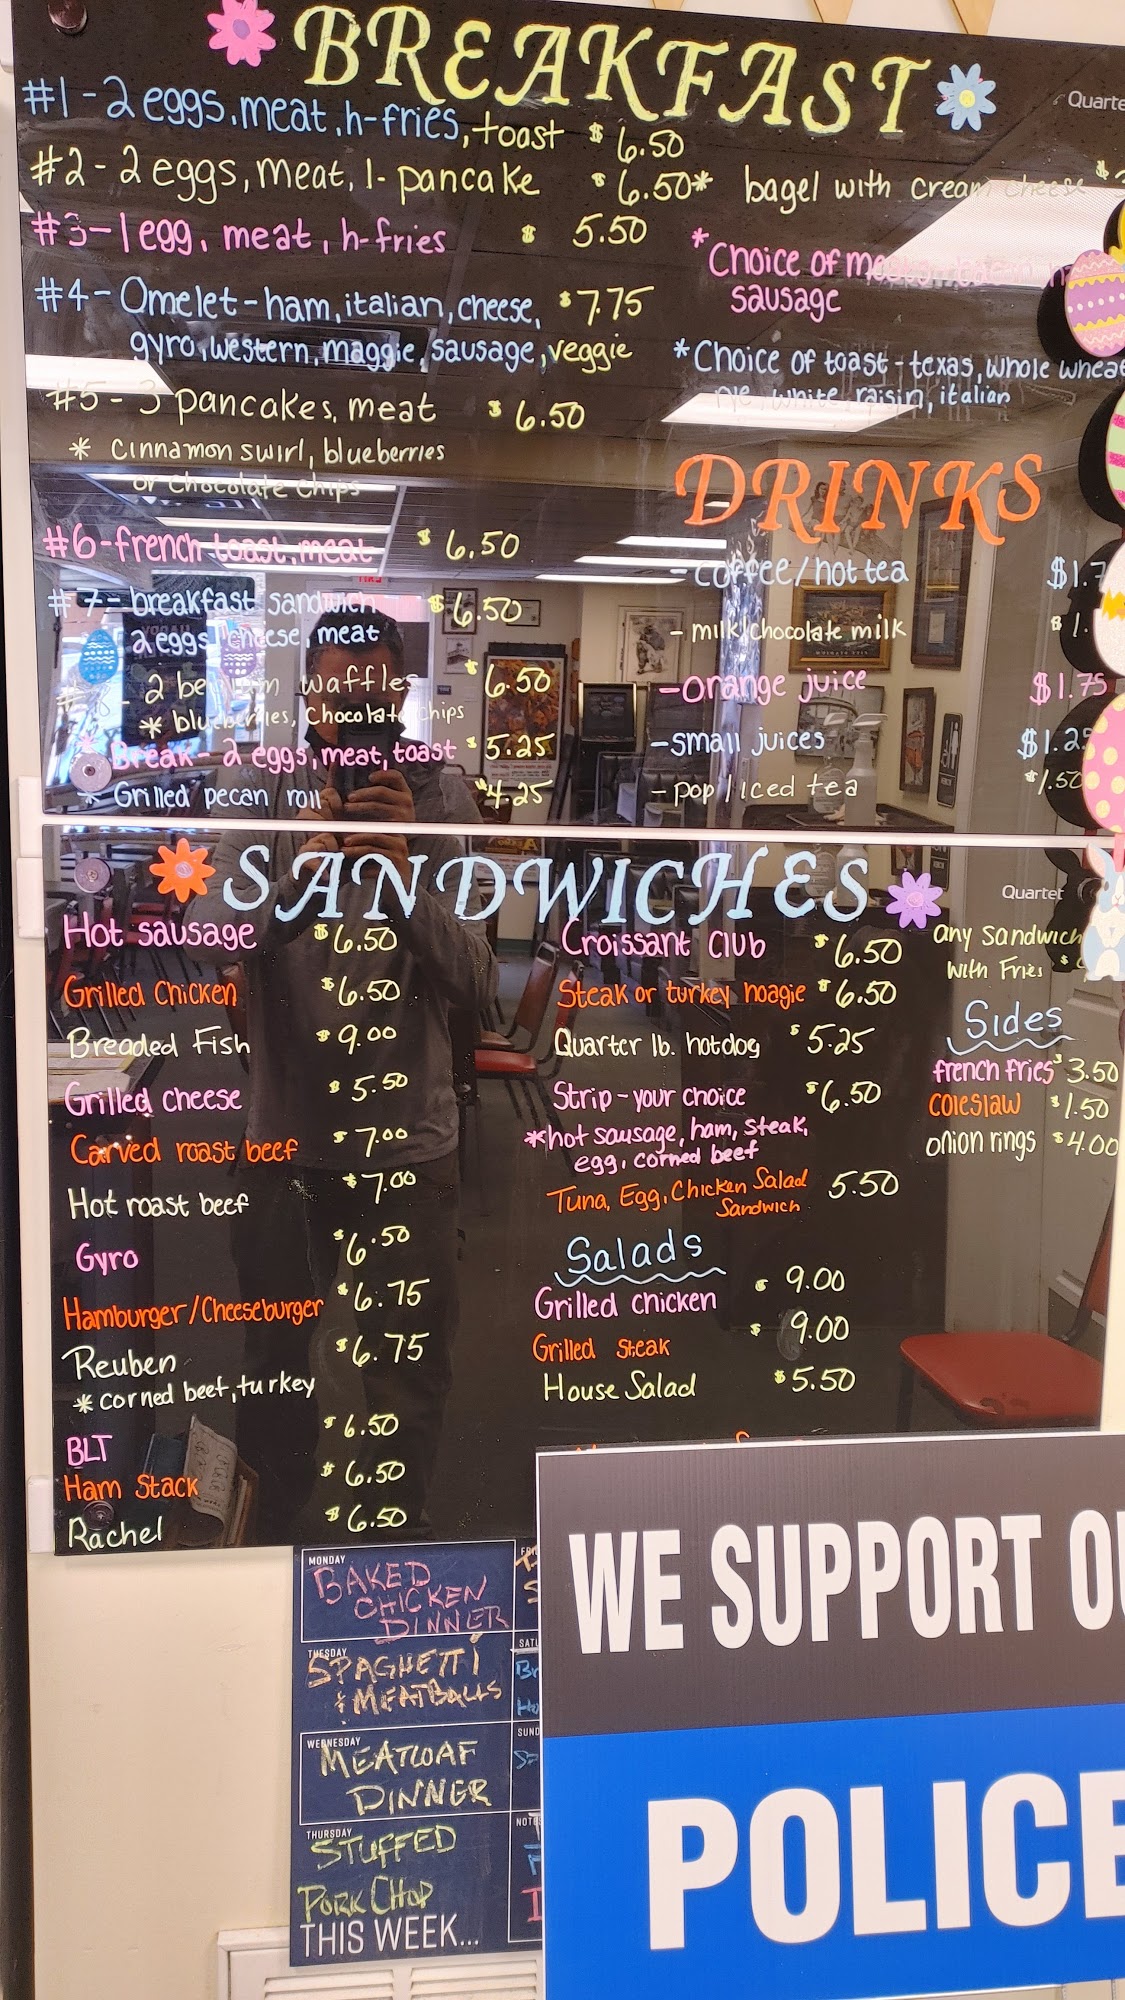 BREAKFAST
Quarte
#1 - 2 eggs, meat, h-fries, toast $6.50
#2 - 2 eggs, meat, 1- pancake $6.50
* bagel with cream cheese $
#3 - 1 egg, meat, h-fries $ 5.50
* Choice of
sausage
#4 - Omelet - ham, italian, cheese, $7.75
gyro, western, maggie, sausage, veggie
* Choice of toast - texas, whole wheat
rye, white, raisin, italian
#5 - 3 pancakes, meat $6.50
* cinnamon swirl, blueberries
or chocolate chips
#6 - french toast, meat $6.50
#7 - breakfast sandwich $6.50
2 eggs, cheese, meat
2 waffles $6.50
* blueberries, chocolate chips
Break - 2 eggs, meat, toast $5.25
* Grilled pecan roll $4.25
DRINKS
- coffee/hot tea $1.7
- milk/chocolate milk $1.
- orange juice $1.75
- small juices $1.25
- pop/iced tea $1.50
SANDWICHES
Quartet
Hot sausage $6.50
Grilled Chicken $6.50
Breaded Fish $9.00
Grilled cheese $5.50
Carved roast beef $7.00
Hot roast beef $7.00
Gyro $6.50
Hamburger/Cheeseburger $6.75
Reuben $6.75
* corned beef, turkey
BLT $6.50
Ham Stack $6.50
Rachel $6.50
Croissant Club $6.50
Steak or turkey hoagie $6.50
Quarter lb. hotdog $5.25
Strip - your choice $6.50
*hot sausage, ham, steak,
egg, corned beef
Tuna, Egg, Chicken Salad 5.50
Sandwich
Salads
Grilled chicken $ 9.00
Grilled steak $ 9.00
House Salad $5.50
any sandwich
with Fries $
Sides
french fries $3.50
coleslaw $1.50
onion rings $4.00
MONDAY
BAKED
CHICKEN
DINNER
TUESDAY
SPAGHETTI
& MEATBALLS
WEDNESDAY
MEATLOAF
DINNER
THURSDAY
STUFFED
PORK CHOP
THIS WEEK...
FRI
SATU
SUND
NOTE
WE SUPPORT OU
POLICE